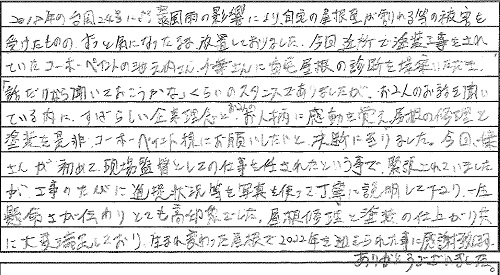 2018年の台風24号による暴風雨の影響により自宅の屋根瓦が割れる等の被害を
受けたものの、ずっと気になったまま放置しておりました。今回近所で塗装工事をされ
ていたユーホーペイントの池之内さん、小葉さんに自宅屋根の診断を提案いただき、
「話だけなら聞いておこうかな」くらいのスタンスでありましたが、お2人のお話を聞いて
いる内に、すばらしい企業理念とお2人のお人柄に感動を覚え屋根の修理と
塗装を是非ユーホーペイント様にお願いしたいと決断に至りました。今回、小葉
さんが初めて現場監督としての仕事を任されたという事で、緊張されていました
が工事のたびに進捗状況等を写真を使って丁寧に説明して下さり、一生
懸命さが伝わりとても高印象でした。屋根修理と塗装の仕上がり共
に大変満足しており、生まれ変わった屋根で2022年を迎えられた事に感謝致します。
ありがとうございました。